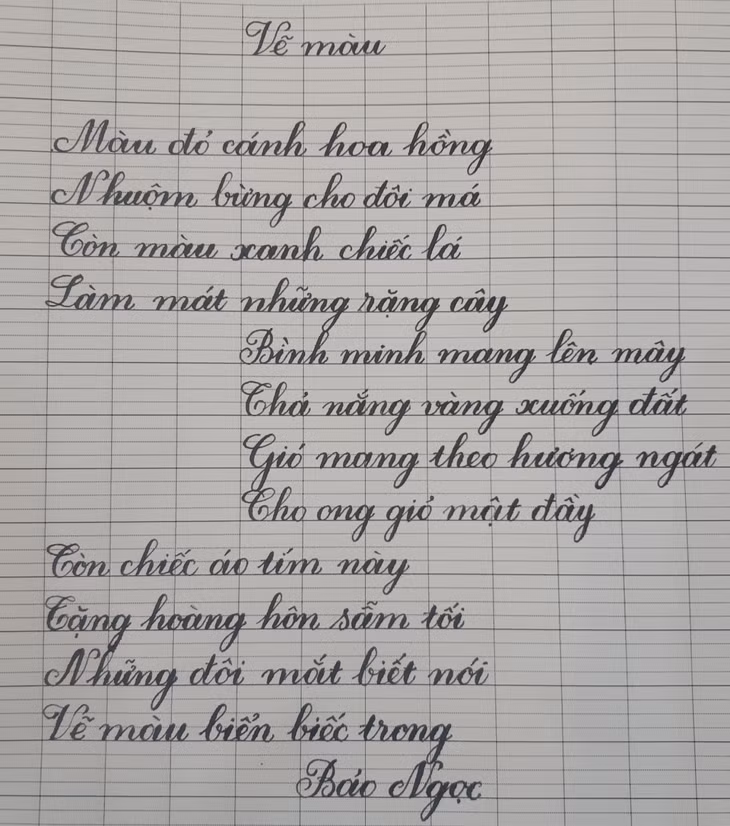 Vẽ màu
Màu đỏ cánh hoa hồng
Nhuộm bừng cho đôi má
Còn màu xanh chiếc lá
Làm mát những rặng cây
Bình minh mang lên mây
Thả nắng vàng xuống đất
Gió mang theo hương ngát
Cho ong giỏ mật đầy
Còn chiếc áo tím này
Tặng hoàng hôn sẫm tối
Những đôi mắt biết nói
Vẽ màu biển biếc trong
Bảo Ngọc